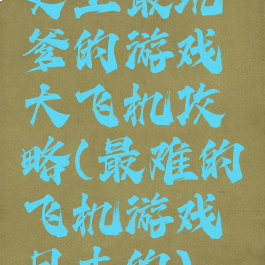 史上最坑
爹的游戏
大飞机攻
略(最难的
飞机游戏